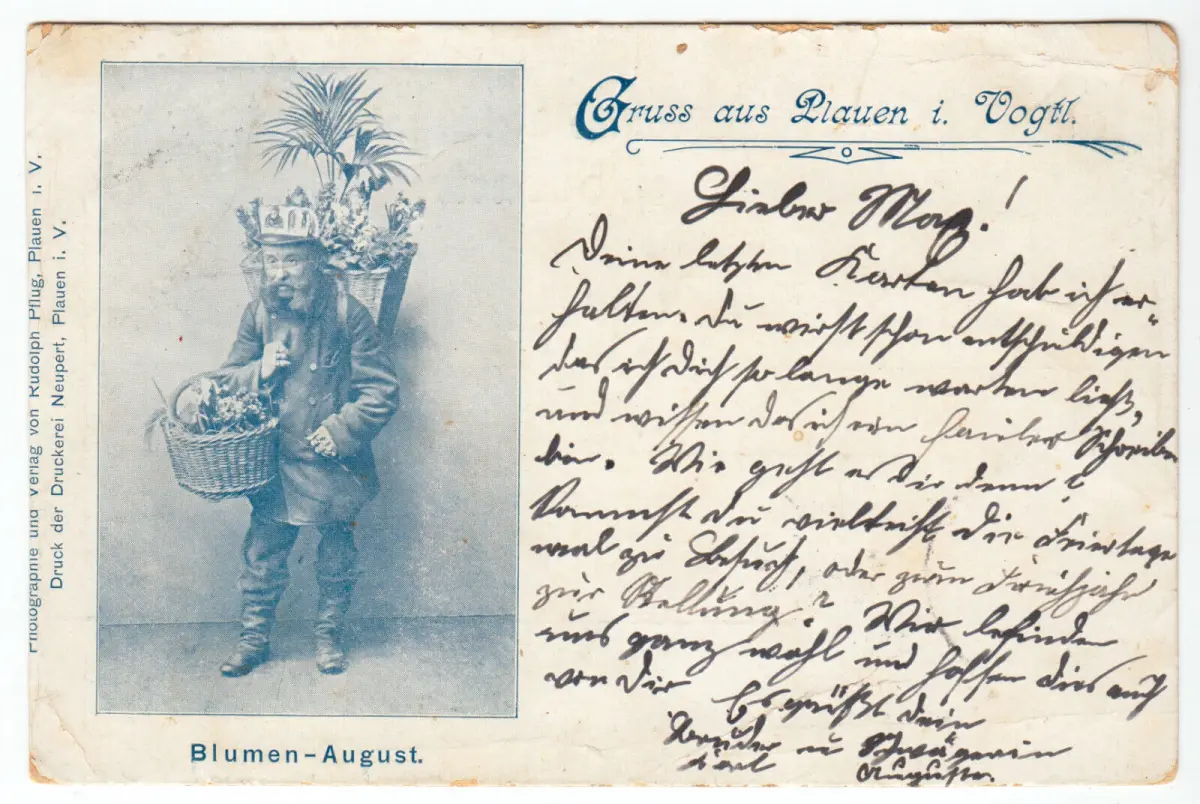 Photographie und Verlag von Rudolph Pflug, Plauen i. V.
Druck der Druckerei Neupert, Plauen i. V.
Gruss aus Plauen i. Vogtl.
Lieber Max!
Deine letzten Karten hab ich er-
halten. Du wirst schon entschuldigen
das ich Dich so lange warten ließ,
und wissen das ich ein fauler Schreiber
bin. Wie geht es Dir denn?
Kommst Du vielleicht die Feiertage
mal zu Besuch, oder zum Frühjahr
zur Stellung? Wir befinden
uns ganz wohl und hoffen dies auch
von Dir Es grüßt Dein
Bruder u Schwägerin
Karl Auguste.
Blumen-August.